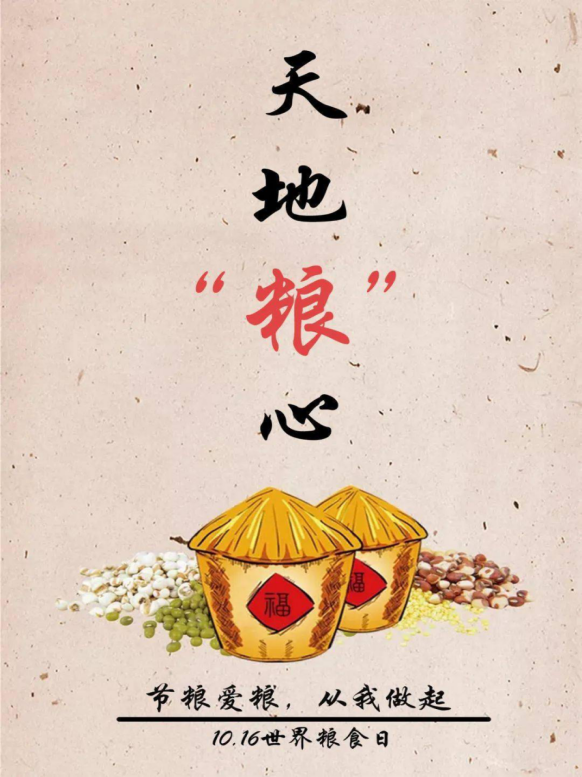 天
地
“粮”
心
福
福
节粮爱粮，从我做起
10.16世界粮食日